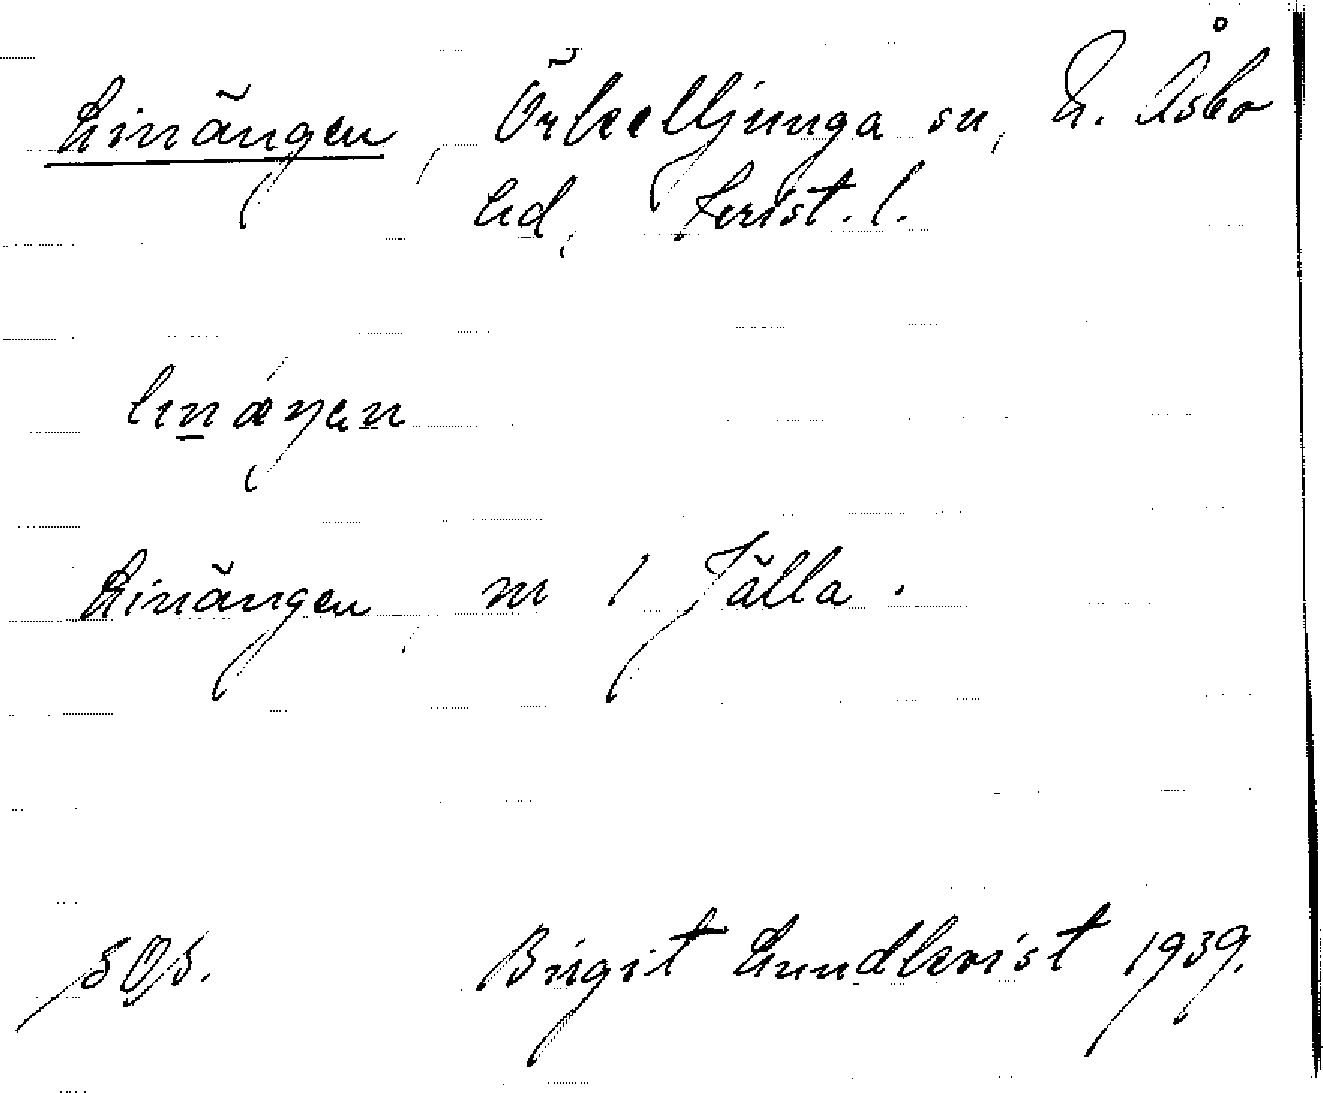 Linängen, Örkelljunga sn, N. Åsbo
hd, Krist. l.
linäŋen
Linängen, nr 1 Fjälla.
SOS. Birgit Lundkvist 1939.